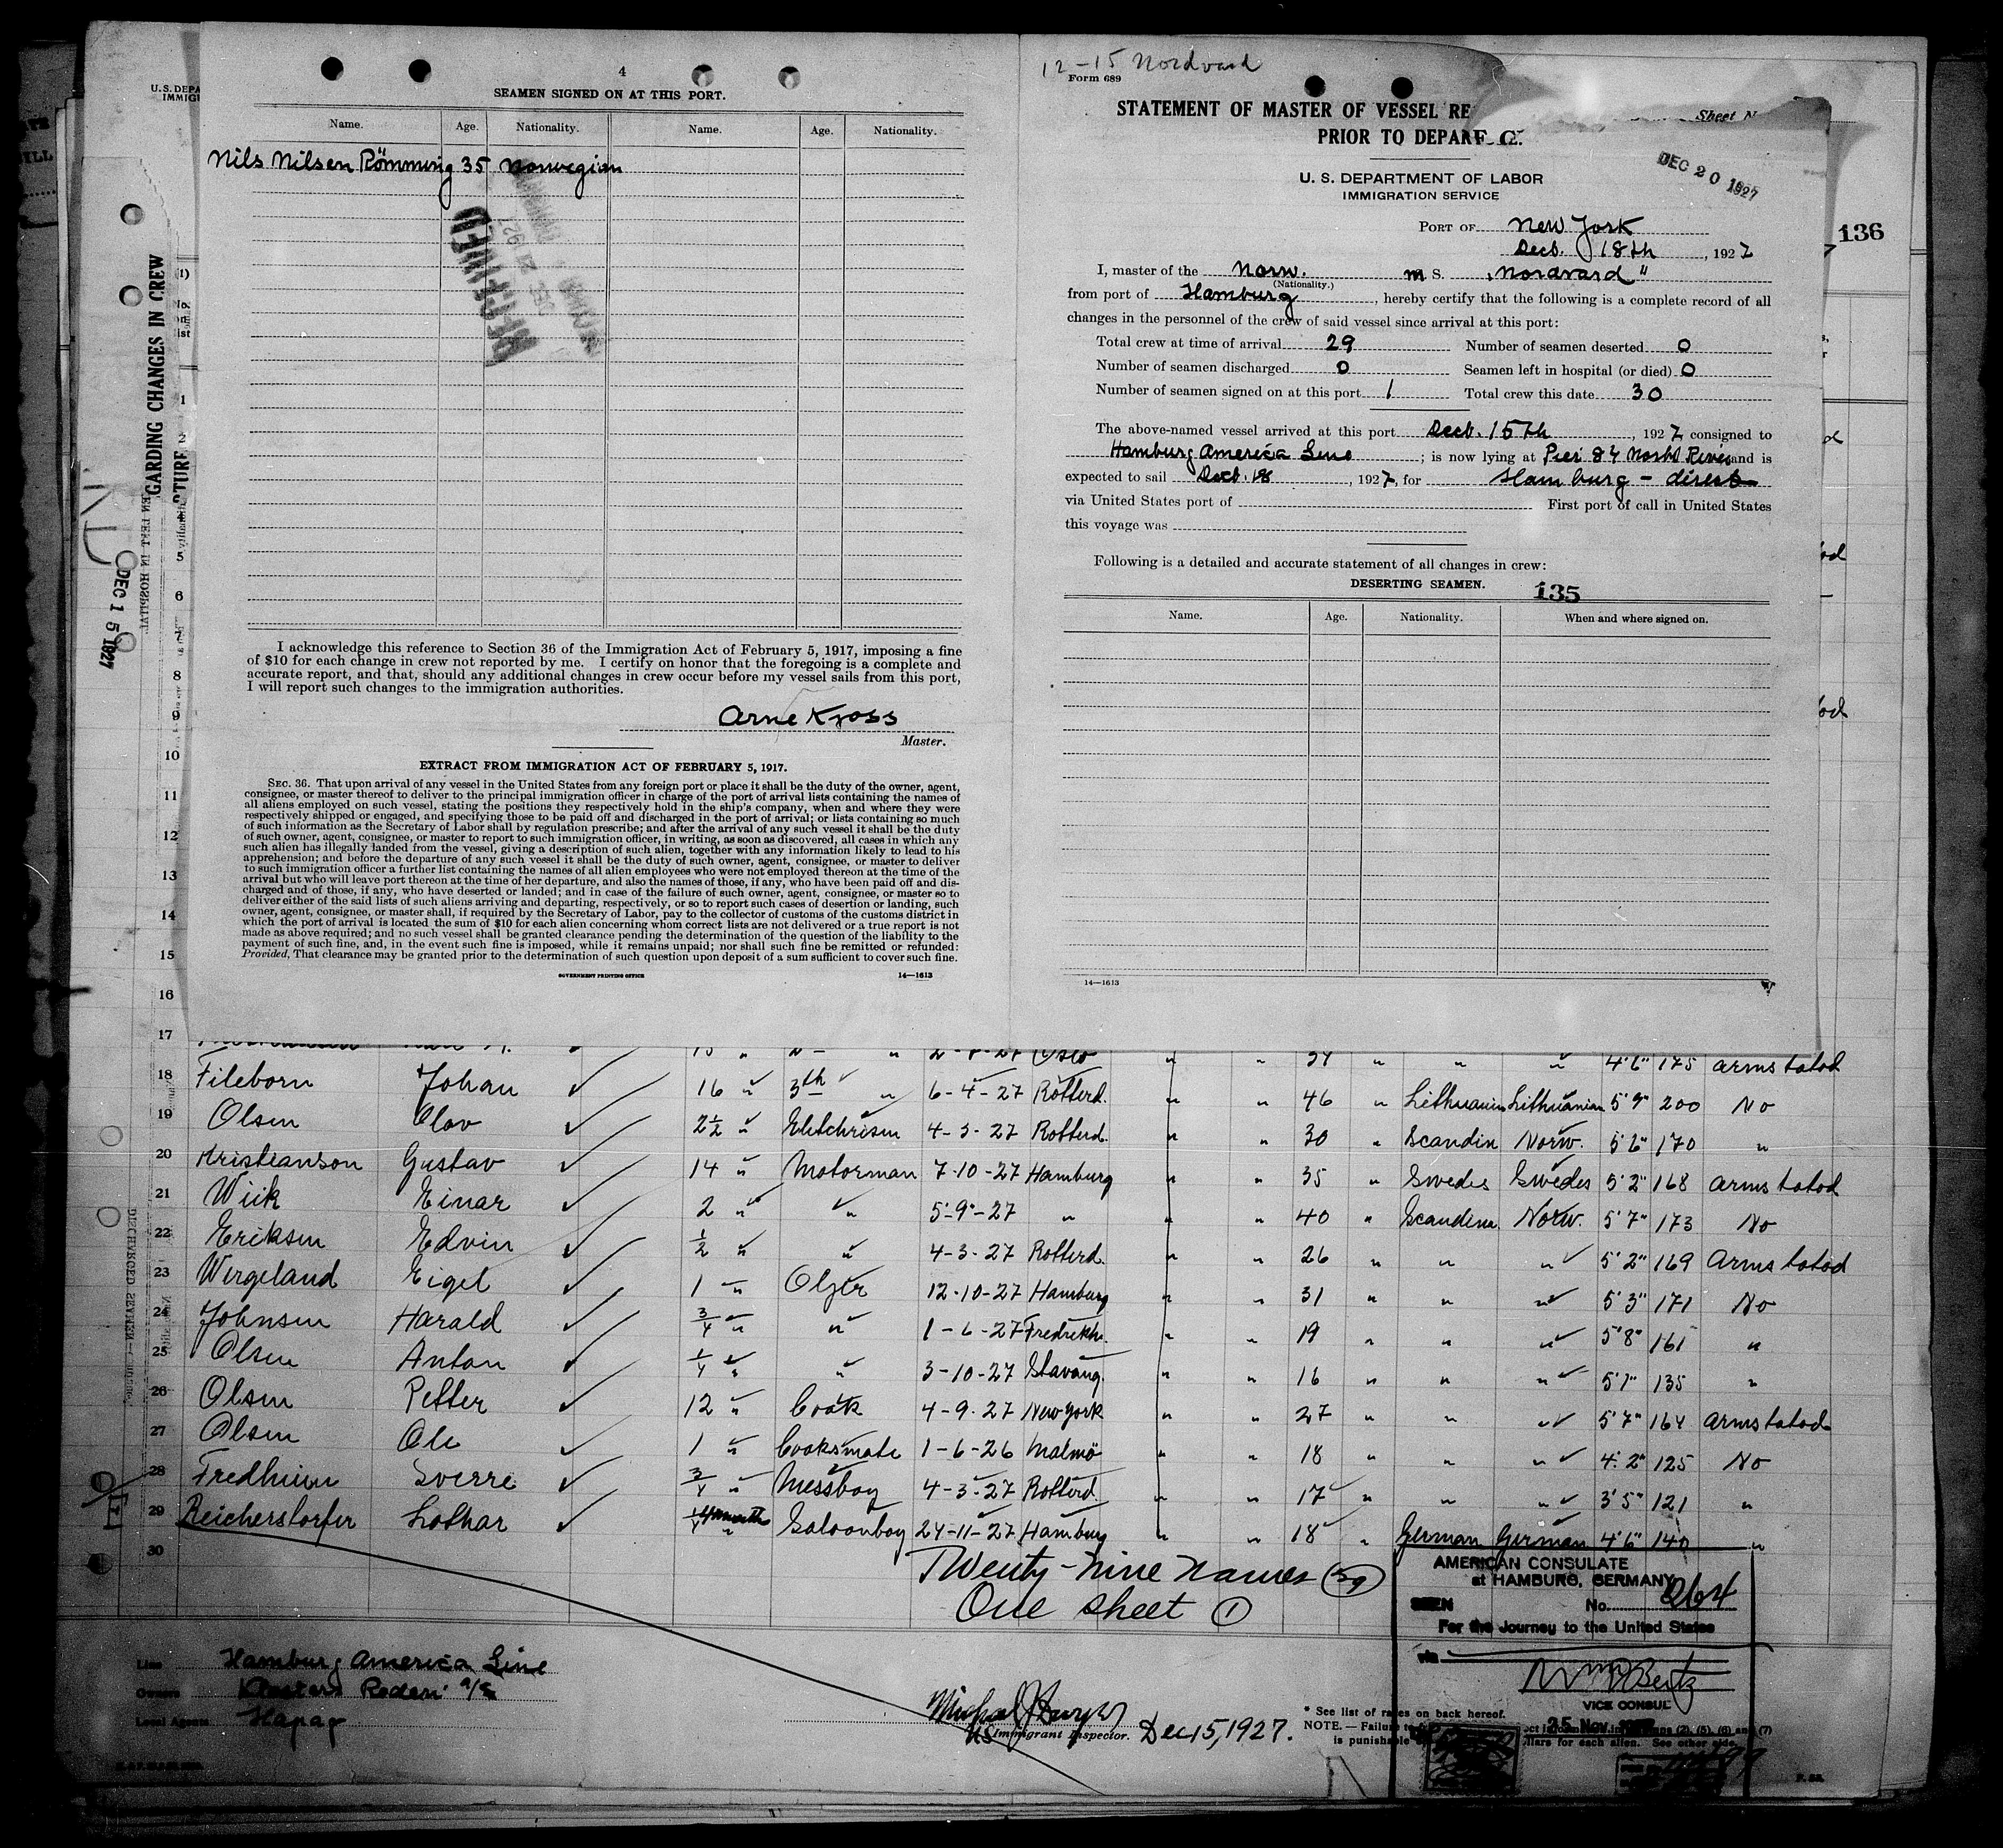 4
SEAMEN SIGNED ON AT THIS PORT.
Name. Age. Nationality. Name. Age. Nationality.
Nils Nilsen Römming 35 Norwegian
I acknowledge this reference to Section 36 of the Immigration Act of February 5, 1917, imposing a fine
of $10 for each change in crew not reported by me. I certify on honor that the foregoing is a complete and
accurate report, and that, should any additional changes in crew occur before my vessel sails from this port,
I will report such changes to the immigration authorities.
Arne Kjoss
Master.
EXTRACT FROM IMMIGRATION ACT OF FEBRUARY 5, 1917.
SEC. 36. That upon arrival of any vessel in the United States from any foreign port or place it shall be the duty of the owner, agent,
consignee, or master thereof to deliver to the principal immigration officer in charge of the port of arrival lists containing the names of
all aliens employed on such vessel, stating the positions they respectively hold in the ship's company, when and where they were
respectively shipped or engaged, and specifying those to be paid off and discharged in the port of arrival; or lists containing so much
of such information as the Secretary of Labor shall by regulation prescribe; and after the arrival of any such vessel it shall be the duty
of such owner, agent, consignee, or master to report to such immigration officer, in writing, as soon as discovered, all cases in which any
such alien has illegally landed from the vessel, giving a description of such alien, together with any information likely to lead to his
apprehension; and before the departure of any such vessel it shall be the duty of such owner, agent, consignee, or master to deliver
to such immigration officer a further list containing the names of all alien employees who were not employed thereon at the time of the
arrival but who will leave port thereon at the time of her departure, and also the names of those, if any, who have been paid off and dis-
charged and of those, if any, who have deserted or landed; and in case of the failure of such owner, agent, consignee, or master so to
deliver either of the said lists of such aliens arriving and departing, respectively, or so to report such cases of desertion or landing, such
owner, agent, consignee, or master shall, if required by the Secretary of Labor, pay to the collector of customs of the customs district in
which the port of arrival is located the sum of $10 for each alien concerning whom correct lists are not delivered or a true report is not
made as above required; and no vessel shall be granted clearance pending the determination of the question of the liability to the
payment of such fine, and, in the event such fine is imposed, while it remains unpaid; nor shall such fine be remitted or refunded:
Provided, That clearance may be granted prior to the determination of such question upon deposit of a sum sufficient to cover such fine.
GOVERNMENT PRINTING OFFICE 14—1613
12-15 Nordvard
Form 689
STATEMENT OF MASTER OF VESSEL RE
PRIOR TO DEPAR
Sheet N
DEC 20 1927
U. S. DEPARTMENT OF LABOR
IMMIGRATION SERVICE
PORT OF New York
Decb. 18th, 1927
136
I, master of the Norw. m S. "Nordvard"
(Nationality.)
from port of Hamburg, hereby certify that the following is a complete record of all
changes in the personnel of the crew of said vessel since arrival at this port:
Total crew at time of arrival 29 Number of seamen deserted 0
Number of seamen discharged 0 Seamen left in hospital (or died) 0
Number of seamen signed on at this port 1 Total crew this date 30
The above-named vessel arrived at this port Decb. 15th, 1927 consigned to
Hamburg America Line; is now lying at Pier 84 North River and is
expected to sail Decb. 18, 1927, for Hamburg - direct
via United States port of First port of call in United States
this voyage was
Following is a detailed and accurate statement of all changes in crew:
DESERTING SEAMEN. 135
Name. Age. Nationality. When and where signed on.
14—1613
GARDING CHANGES IN CREW
DEC 15 1927
1
2
4
5
6
7
8
9
10
11
12
13
14
15
16
17
4'6" 175 arms tatod
18 Fileborn Johan 16 " 3th " 6-4-27 Rotterd. " " 46 " Lithuanin Lithuanian 5'9" 200 No
19 Olsen Olov 2½ " Eletchrisin 4-3-27 Rotterd. " " 30 " Scandin Norw. 5'6" 170 "
20 Kristianson Gustav 14 " Motorman 7-10-27 Hamburg " " 35 " Swedes Swedes 5'2" 168 arms tatod
21 Wiik Einar 2 " " 5-9-27 " " " 40 " Scandina Norw. 5'7" 173 No
22 Eriksen Edvin ½ " " 4-3-27 Rotterd. " " 26 " " " 5'2" 169 Arms tatod
23 Wergeland Eigel 1 " Oljer 12-10-27 Hamburg " " 31 " " " 5'3" 171 No
24 Johnsen Harald ¾ " " 1-6-27 Fredrikh. " " 19 " " " 5'8" 161 "
25 Olsen Anton ¼ " " 3-10-27 Stavang. " " 16 " " " 5'1" 135 "
26 Olsen Petter 12 " Cook 4-9-27 New York " " 27 " " " 5'7" 164 arms tatod
27 Olsen Ole 1 " Cooksmate 1-6-26 Malmö " " 18 " " " 4'2" 125 No
28 Fredhiim Sverre ¾ " Messboy 4-3-27 Rotterd. " " 17 " " " 3'5" 121 "
29 Reicherstorfer Lothar ¼ " Saloonboy 24-11-27 Hamburg " " 18 " German German 4'6" 140 "
30
Twenty-nine names (29)
One sheet (1)
AMERICAN CONSULATE
at HAMBURG, GERMANY
SEEN No. 264
For the Journey to the United States
via
VICE CONSUL
25 Nov.
Line Hamburg America Line
Owners Klosters Rederi a/s
Local Agents Hapag
Immigrant Inspector. Dec 15, 1927.
* See list of races on back hereof.
NOTE.—Failure
is punishable